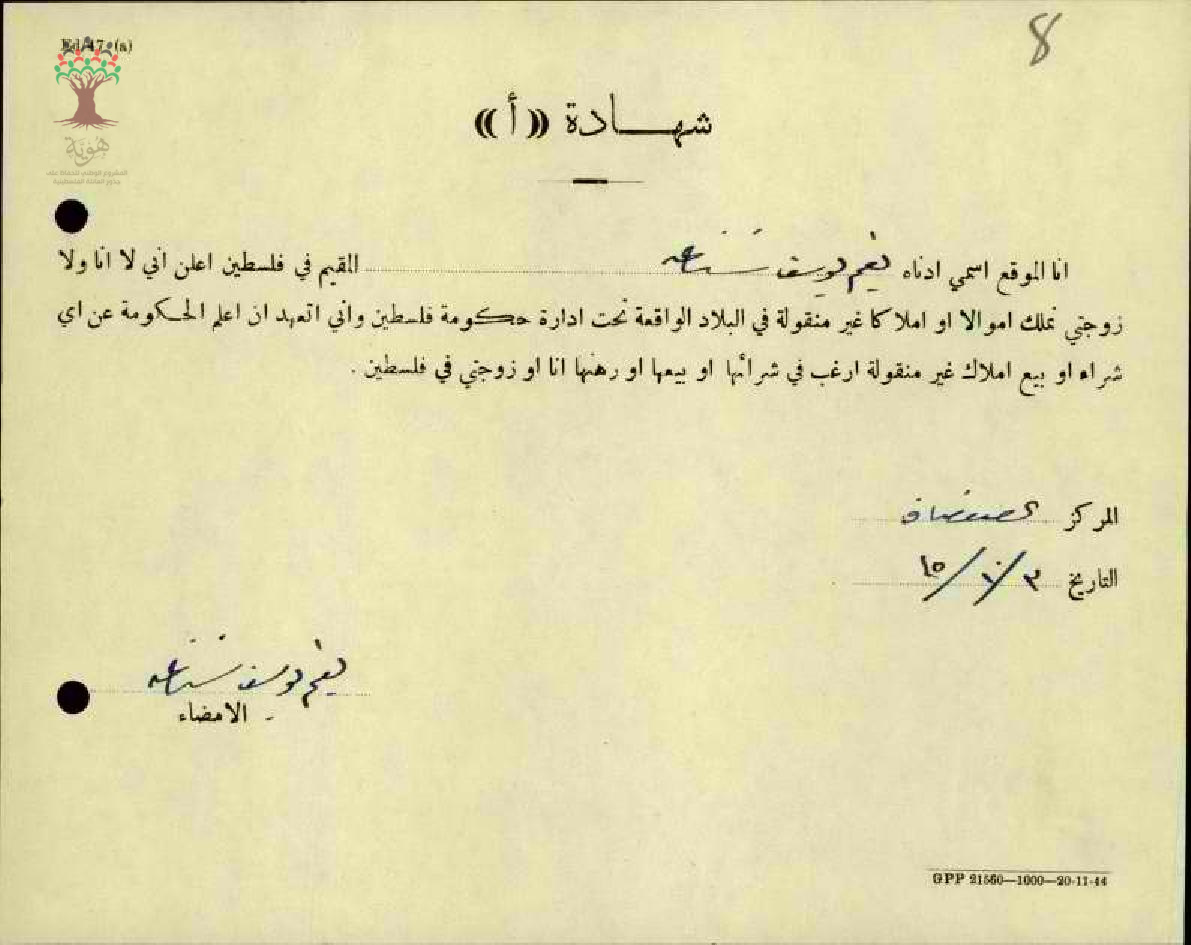 Ed/47 (a)
8
شهـــادة «أ»
هُوِيَّة
المشروع الوطني للحفاظ على
جذور العائلة الفلسطينية
انا الموقع اسمي ادناه نعيم يوسف المقيم في فلسطين اعلن اني لا انا ولا
زوجتي نملك اموالا او املاكا غير منقولة في البلاد الواقعة تحت ادارة حكومة فلسطين واني اتعهد ان اعلم الحكومة عن اي
شراء او بيع املاك غير منقولة ارغب في شرائها او بيعها او رهنها انا او زوجتي في فلسطين .
المركز
التاريخ ٣/١٠/٤٥
نعيم يوسف
الامضاء
GPP 21560—1000—20-11-44